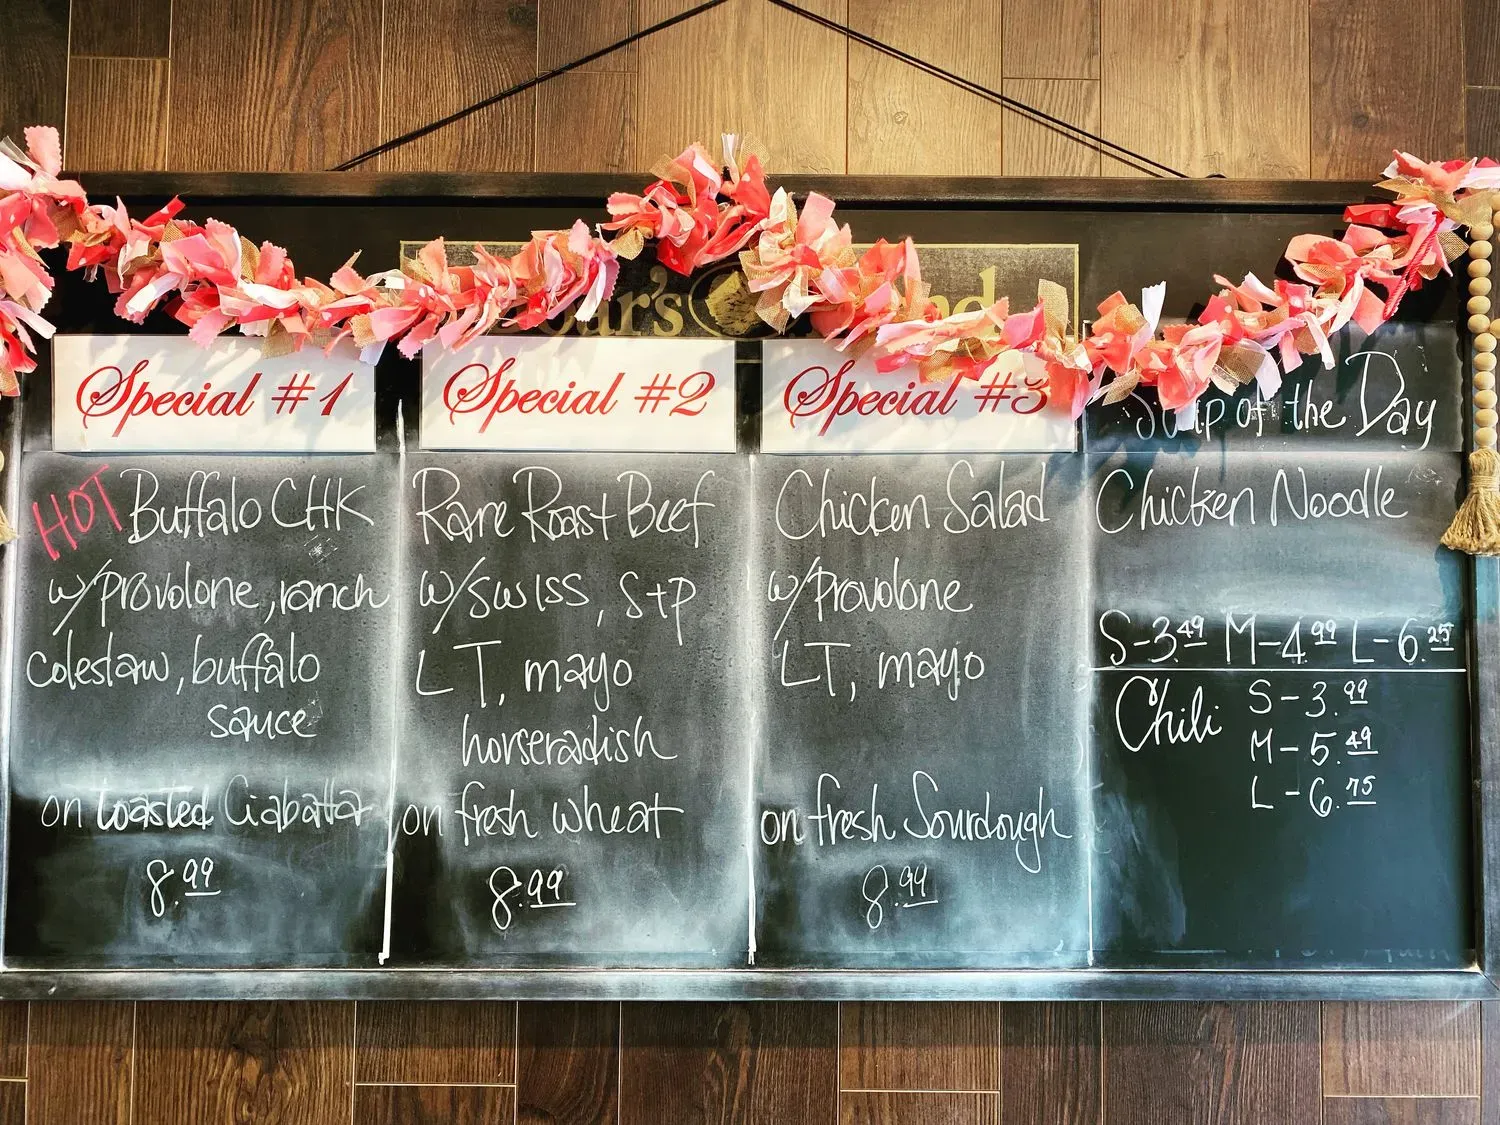 Special #1
HOT Buffalo CHK
w/provolone, ranch
coleslaw, buffalo
sauce
on toasted Ciabatta
8.99
Special #2
Rare Roast Beef
w/swiss, S+P
LT, mayo
horseradish
on fresh wheat
8.99
Special #3
Chicken Salad
w/Provolone
LT, mayo
on fresh Sourdough
8.99
Soup of the Day
Chicken Noodle
S-3.49 M-4.99 L-6.25
Chili S-3.99
M-5.49
L-6.75